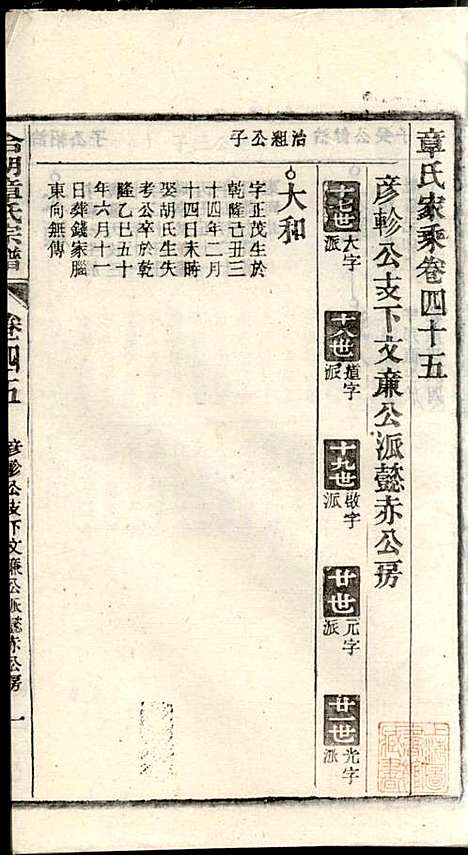 章氏家乘卷四十五
彦軫公支下文廉公派懿赤公房
十七世 大字派
十八世 道字派
十九世 啟字派
廿世 元字派
廿一世 光字派
治組公子
大和
字正茂生於
乾隆己丑三
十四年二月
十四日未時
娶胡氏生失
考公卒於乾
隆乙巳五十
年六月十一
日葬錢家腦
東向無傳
章氏宗譜
卷四十五
彦軫公支下文廉公派懿赤公房
一